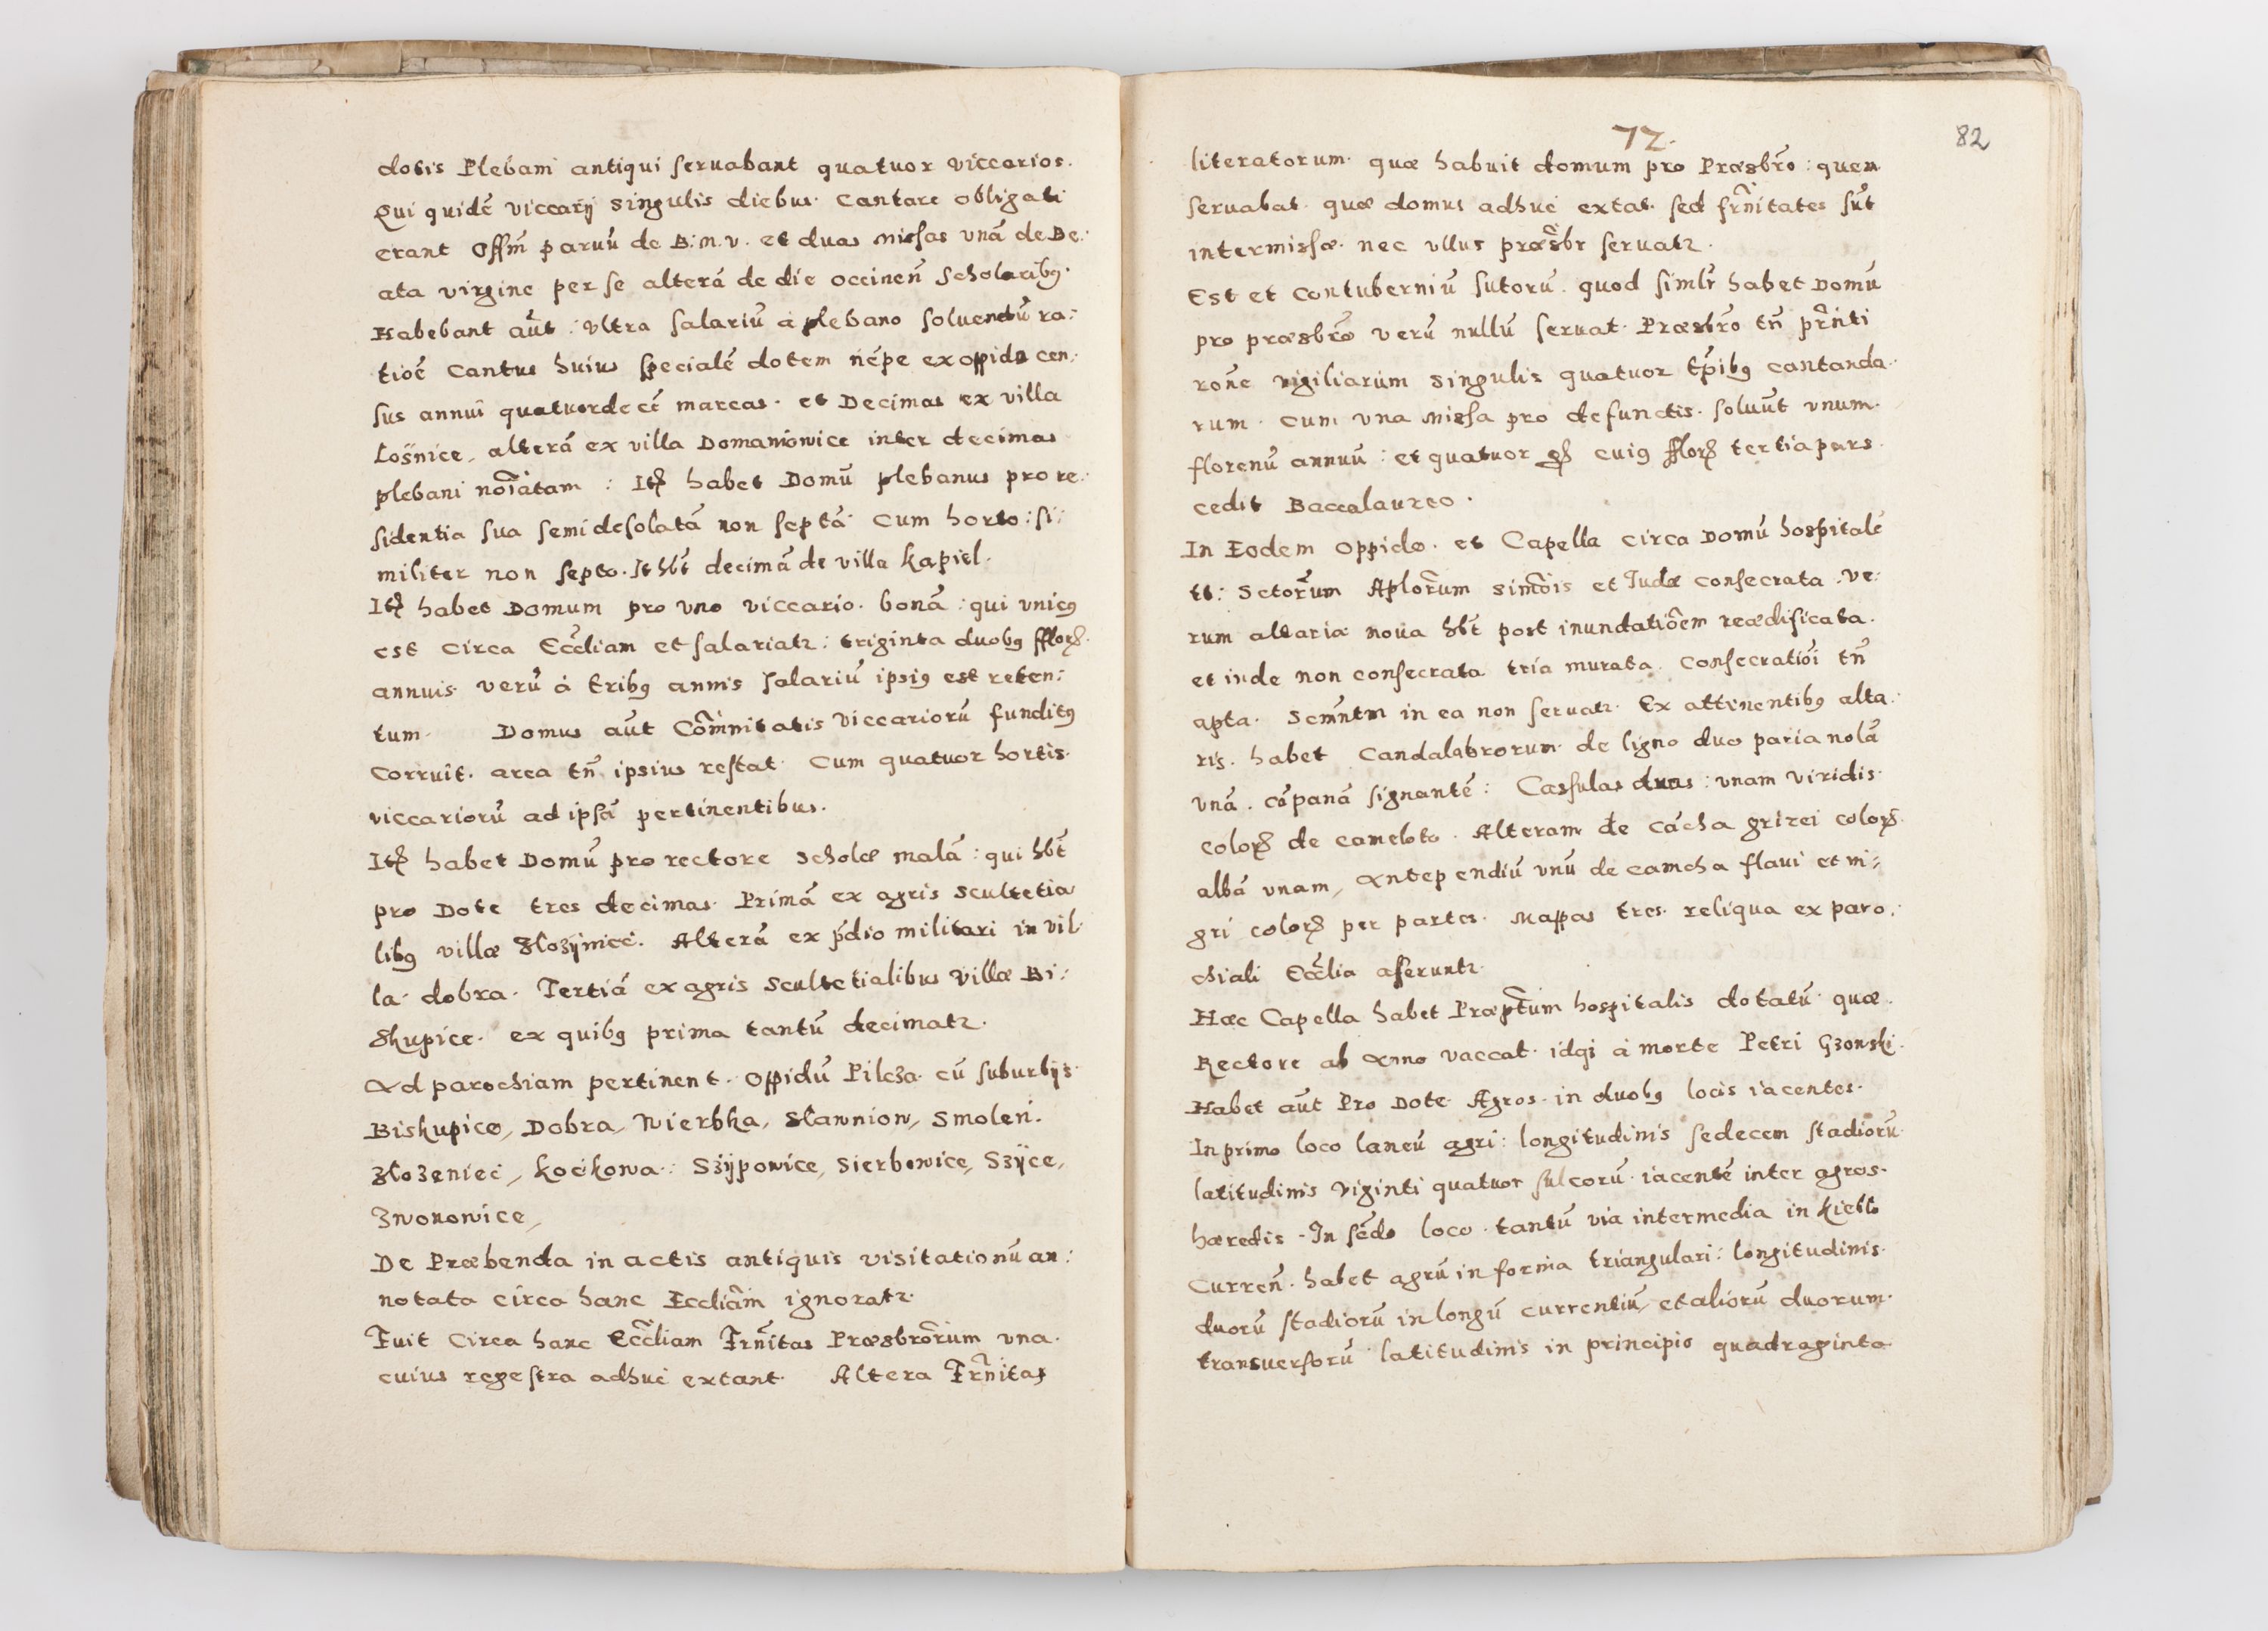 dotis Plebani antiqui seruabant quatuor viccarios.
Qui quidē viccarij singulis diebus cantare obligati
erant Offm̃ paruū de B: m. v. et duas missas vnā de Be:
ata virgine per se alterā de die occineñ Scholaribꝰ.
Habebant aũt: vltra salariū à plebano soluendū ra:
tiõe cantus huius specialē dotem nēpe ex oppido cen:
sus annui quatuordecē marcas. et Decimas ex villa
Łośnice, alterā ex villa Domaniowice inter decimas
plebani noĩatam: Itꝫ habet Domū plebanus pro re:
sidentia sua semidesolatā non septā cum horto: si:
militer non septo. It hb̃t decimā de villa Kąpiel.
Itꝫ habet Domum pro vno viccario. bonā: qui vnicꝰ
est circa Eccl̃iam et salariatr: triginta duobꝰ fflorꝫ.
annuis verū à tribꝰ annis salariū ipsiꝰ est reten:
tum. Domus aũt Com̃nitatis viccariorū funditꝰ
corruit. area tñ ipsius restat cum quatuor hortis
viccariorū ad ipsā pertinentibus.
Itꝫ habet Domū pro rectore scholæ malā: qui hb̃t
pro Dote tres decimas. Primā ex agris scultetia
libꝰ villæ Złożÿniec. Alterā ex p̃dio militari in vil
la dobra. Tertiā ex agris scultetialibus villæ Bi:
skupice. ex quibꝰ prima tantū decimatr.
Ad parochiam pertinent. Oppidū Pilcza. cū suburbijs
Biskupice, Dobra, Wierbka, Sławniow, Smoleń.
Złożeniec, Kocikowa: Szÿpowice, Sierbowice, Szÿce,
Zwonowice,
De Præbenda in actis antiquis visitationū an:
notata circa hanc Eccliãm ignoratr.
Fuit circa hanc Eccl̃iam Frñitas Præsbrõrum vna.
cuius regestra adhuc extant. Altera Frñitas
72.
82
literatorum. quæ habuit domum pro Præsbr̃o: quem
seruabat. quæ domus adhuc extat. sed frñitates sũt
intermissæ. nec vllus præsb̃r seruatr.
Est et Contuberniū sutorū. quod siml̃r habet Domū
pro præsbr̃o verū nullū seruat. Præsbr̃o tñ pr̃nti
rõne vigiliarum singulis quatuor tp̃ibꝰ cantanda
rum. cum vna missa pro defunctis. soluũt vnum
florenū annuū: et quatuor gꝫ cuiꝰ fflorꝫ tertia pars
cedit Baccalaureo.
In Eodem Oppido. et Capella circa Domū hospitalē
tt: Sctorũm Aplorũm Simõis et Judæ consecrata. ve:
rum altaria noua hb̃t post inundatiõem reædificata.
et inde non consecrata tria murata. consecratiõi tñ
apta. Scm̃ntm in ea non seruatr. Ex attinentibꝰ alta:
ris. habet Candalabrorum de ligno duo paria nolā
vnā. cāpanā signantē: Cassulas duas: vnam viridis
colorꝫ de cameloto. Alteram de cācha grizei colorꝫ.
albā vnam, Antependiū vnū de camcha flaui et ni:
gri colorꝫ per partes. Mappas tres. reliqua ex paro:
chiali Eccl̃ia aferuntr.
Hæc Capella habet Præptũm hospitalis dotatū. quæ
Rectore ab Anno vaccat. idqꝫ à morte Petri Gzowski.
Habet aũt Pro Dote. Agros. in duobꝰ locis iacentes.
In primo loco laneū agri: longitudinis sedecem stadiorū
latitudinis viginti quatuor sulcorū. iacentē inter agros
hæredis. In sc̃do loco. tantū via intermedia in Kiebło
Curreñ. habet agrū in forma triangulari: longitudinis
duorū stadiorū in longū currentiū, et aliorū duorum
transuersorū latitudinis in principio quadraginta